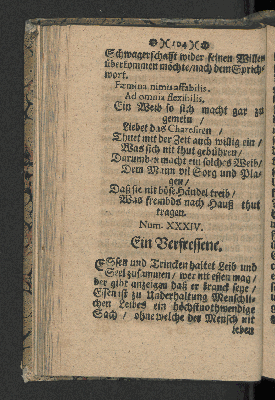 104
Schwagerschafft wider seinen Willen
überkommen möchte/nach dem Sprich-
wort.
Fœmina nimis affabilis.
Ad omnia flexibilis.
Ein Weib so sich macht gar zu
gemein /
Liebet das Charesiren /
Thuet mit der Zeit auch willig ein /
Was sich nit thut gebühren /
Darumben macht ein solches Weib /
Dem Mann vil Sorg und Pla-
gen /
Daß sie nit böse Händel treib /
Was frembds nach Hauß thut
tragen.
Num. XXXIV.
Ein Versressene.
ESsen und Trincken haltet Leib und
Seel zusammen / wer nit essen mag /
der gibt anzeigen daß er kranck seye /
Essen ist zu Underhaltung Menschli-
chen Leibes ein höchstnothwendige
Sach / ohne welche des Mensch nit
leben